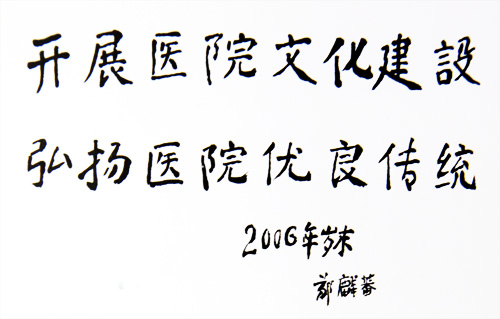 开展医院文化建設
弘扬医院优良传统
2006年岁末
郑麟蕃